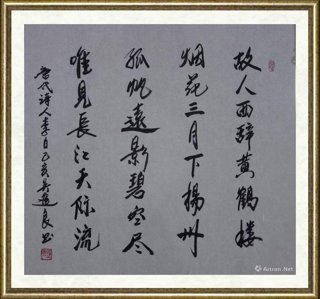 故人西辞黄鹤楼
烟花三月下揚州
孤帆遠影碧空尽
唯見長江天际流
唐代诗人李白乙亥吴進良书
Artron.Net